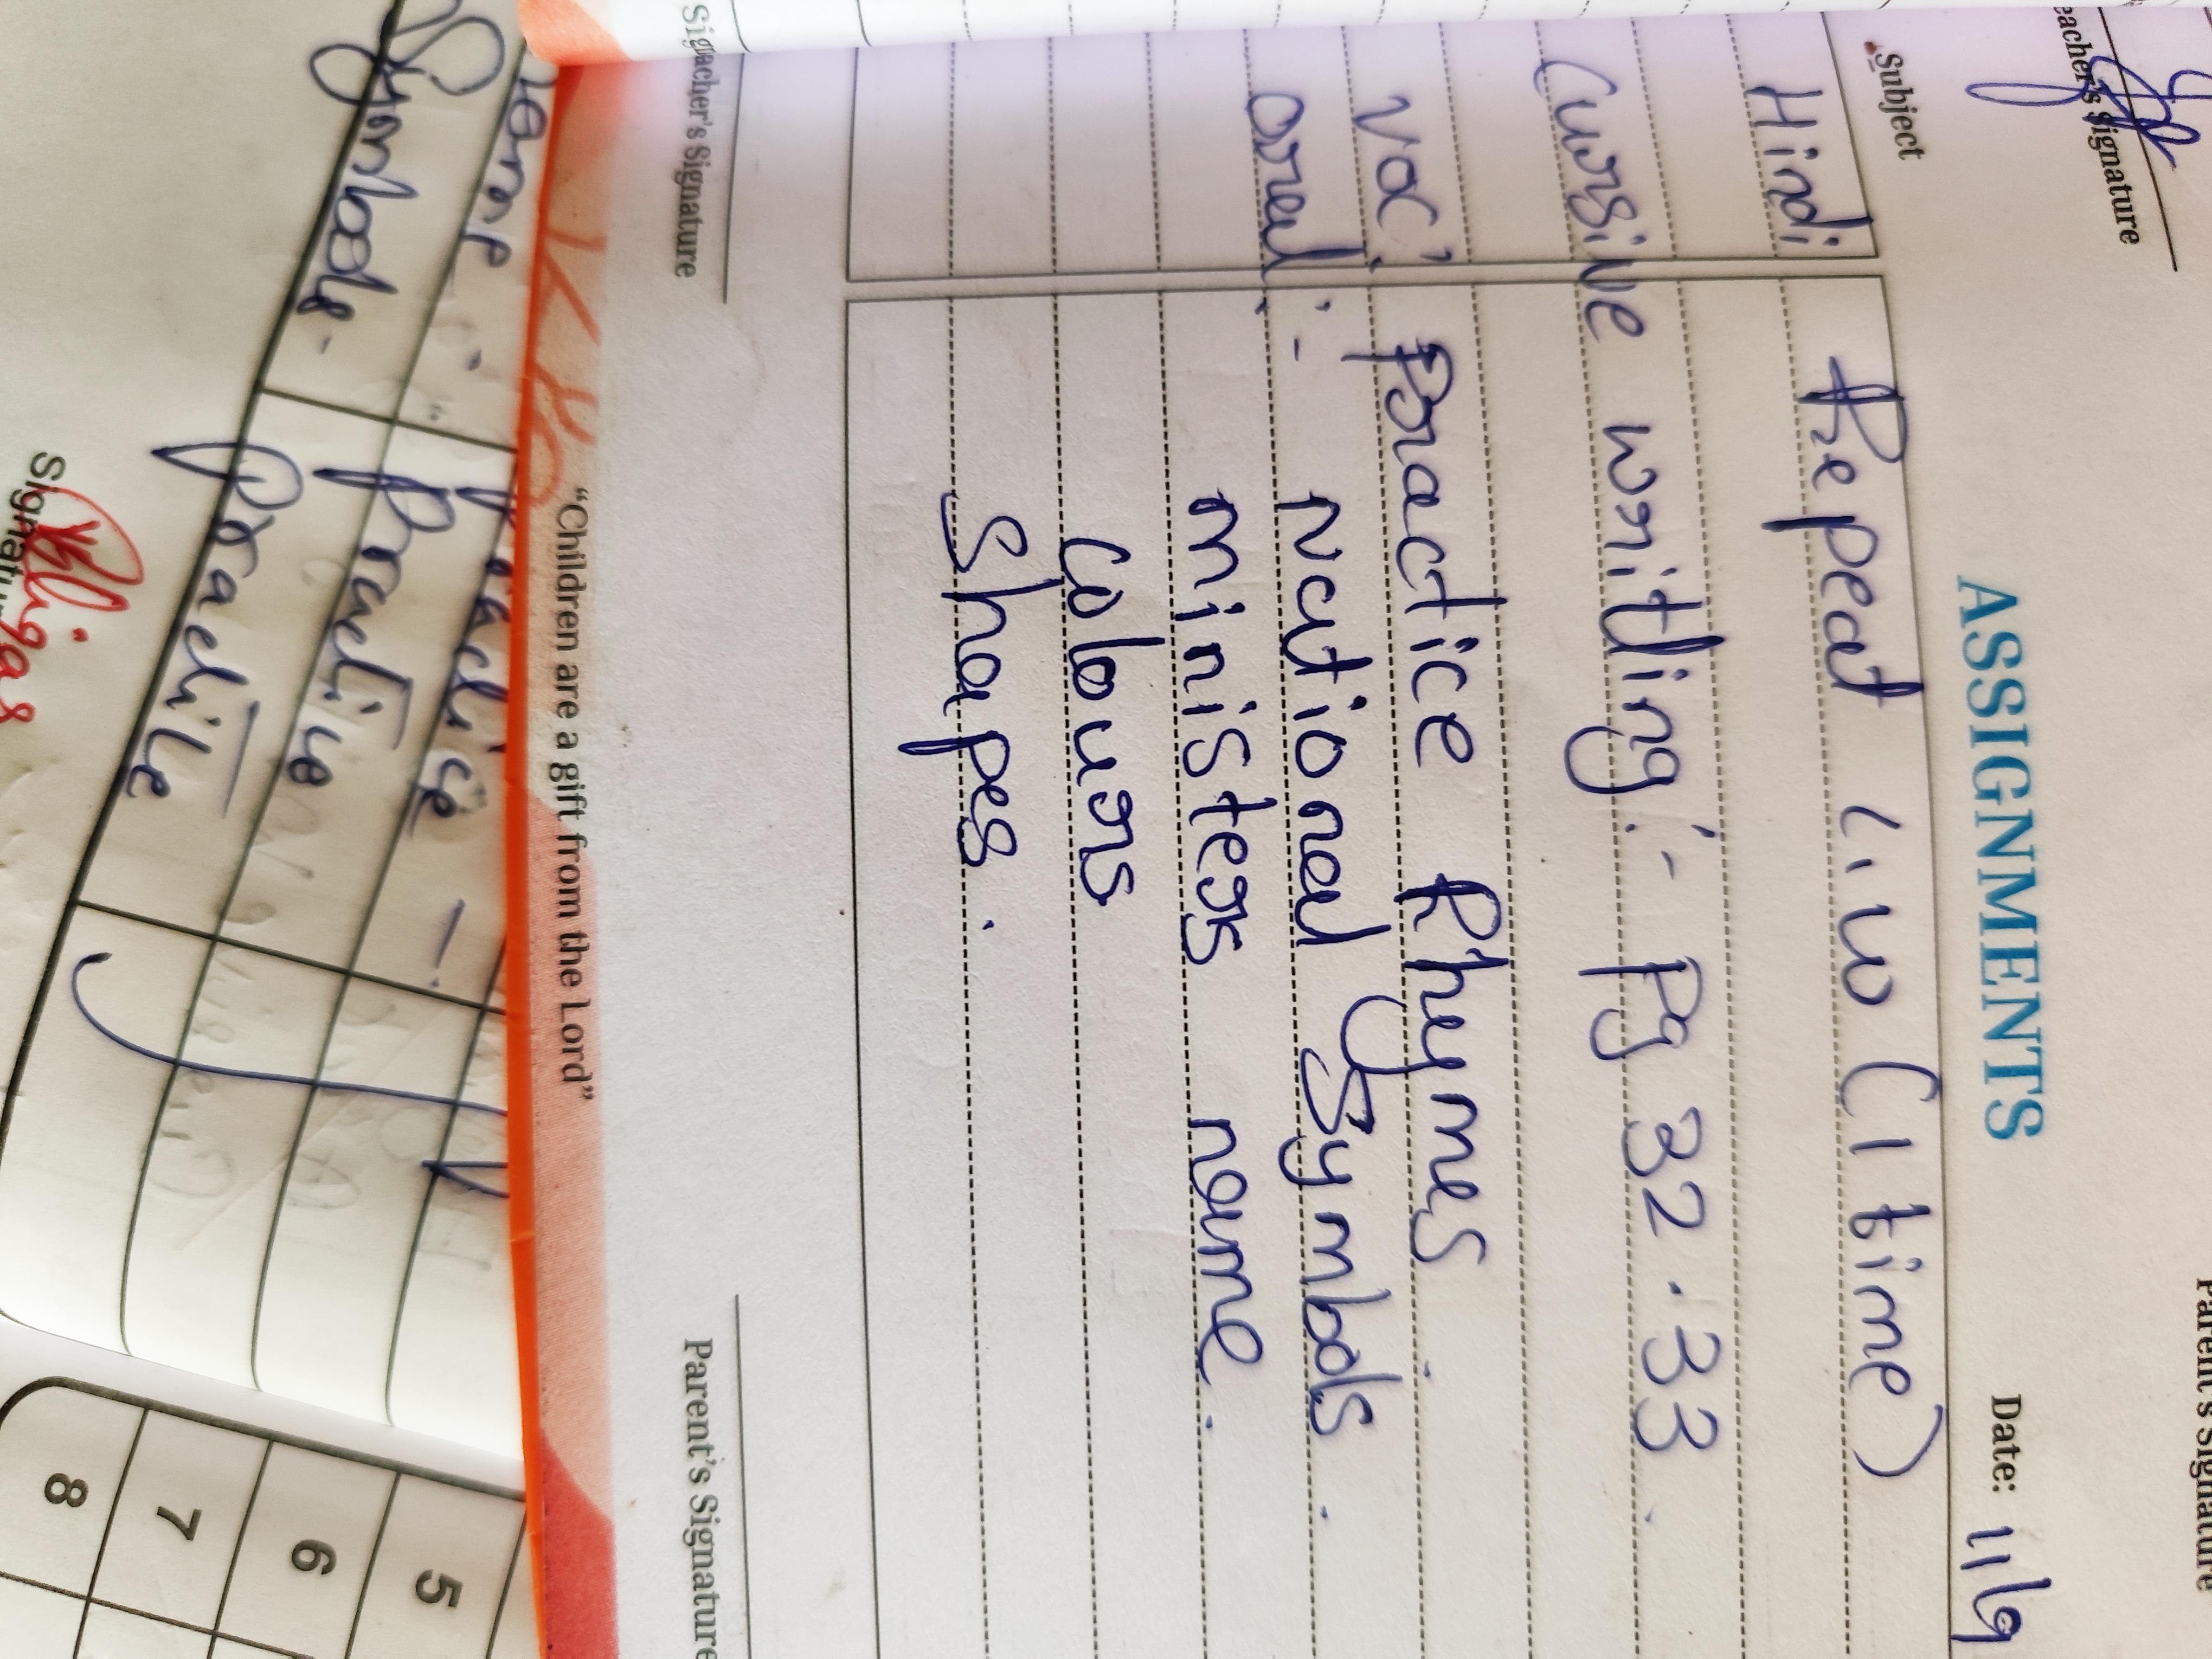 Teacher's Signature
Parent's Signature
ASSIGNMENTS
Date: 11/9
Subject
Hindi Repeat (1 time)
Cursive writting :- Pg 32.33.
Voc: Practice Rhymes.
Oral :- National Symbols.
ministers name.
Colours
Shapes.
Teacher's Signature
Parent's Signature
"Children are a gift from the Lord"
name
Practice -
Practice
Symbols - Practice
5
6
7
8